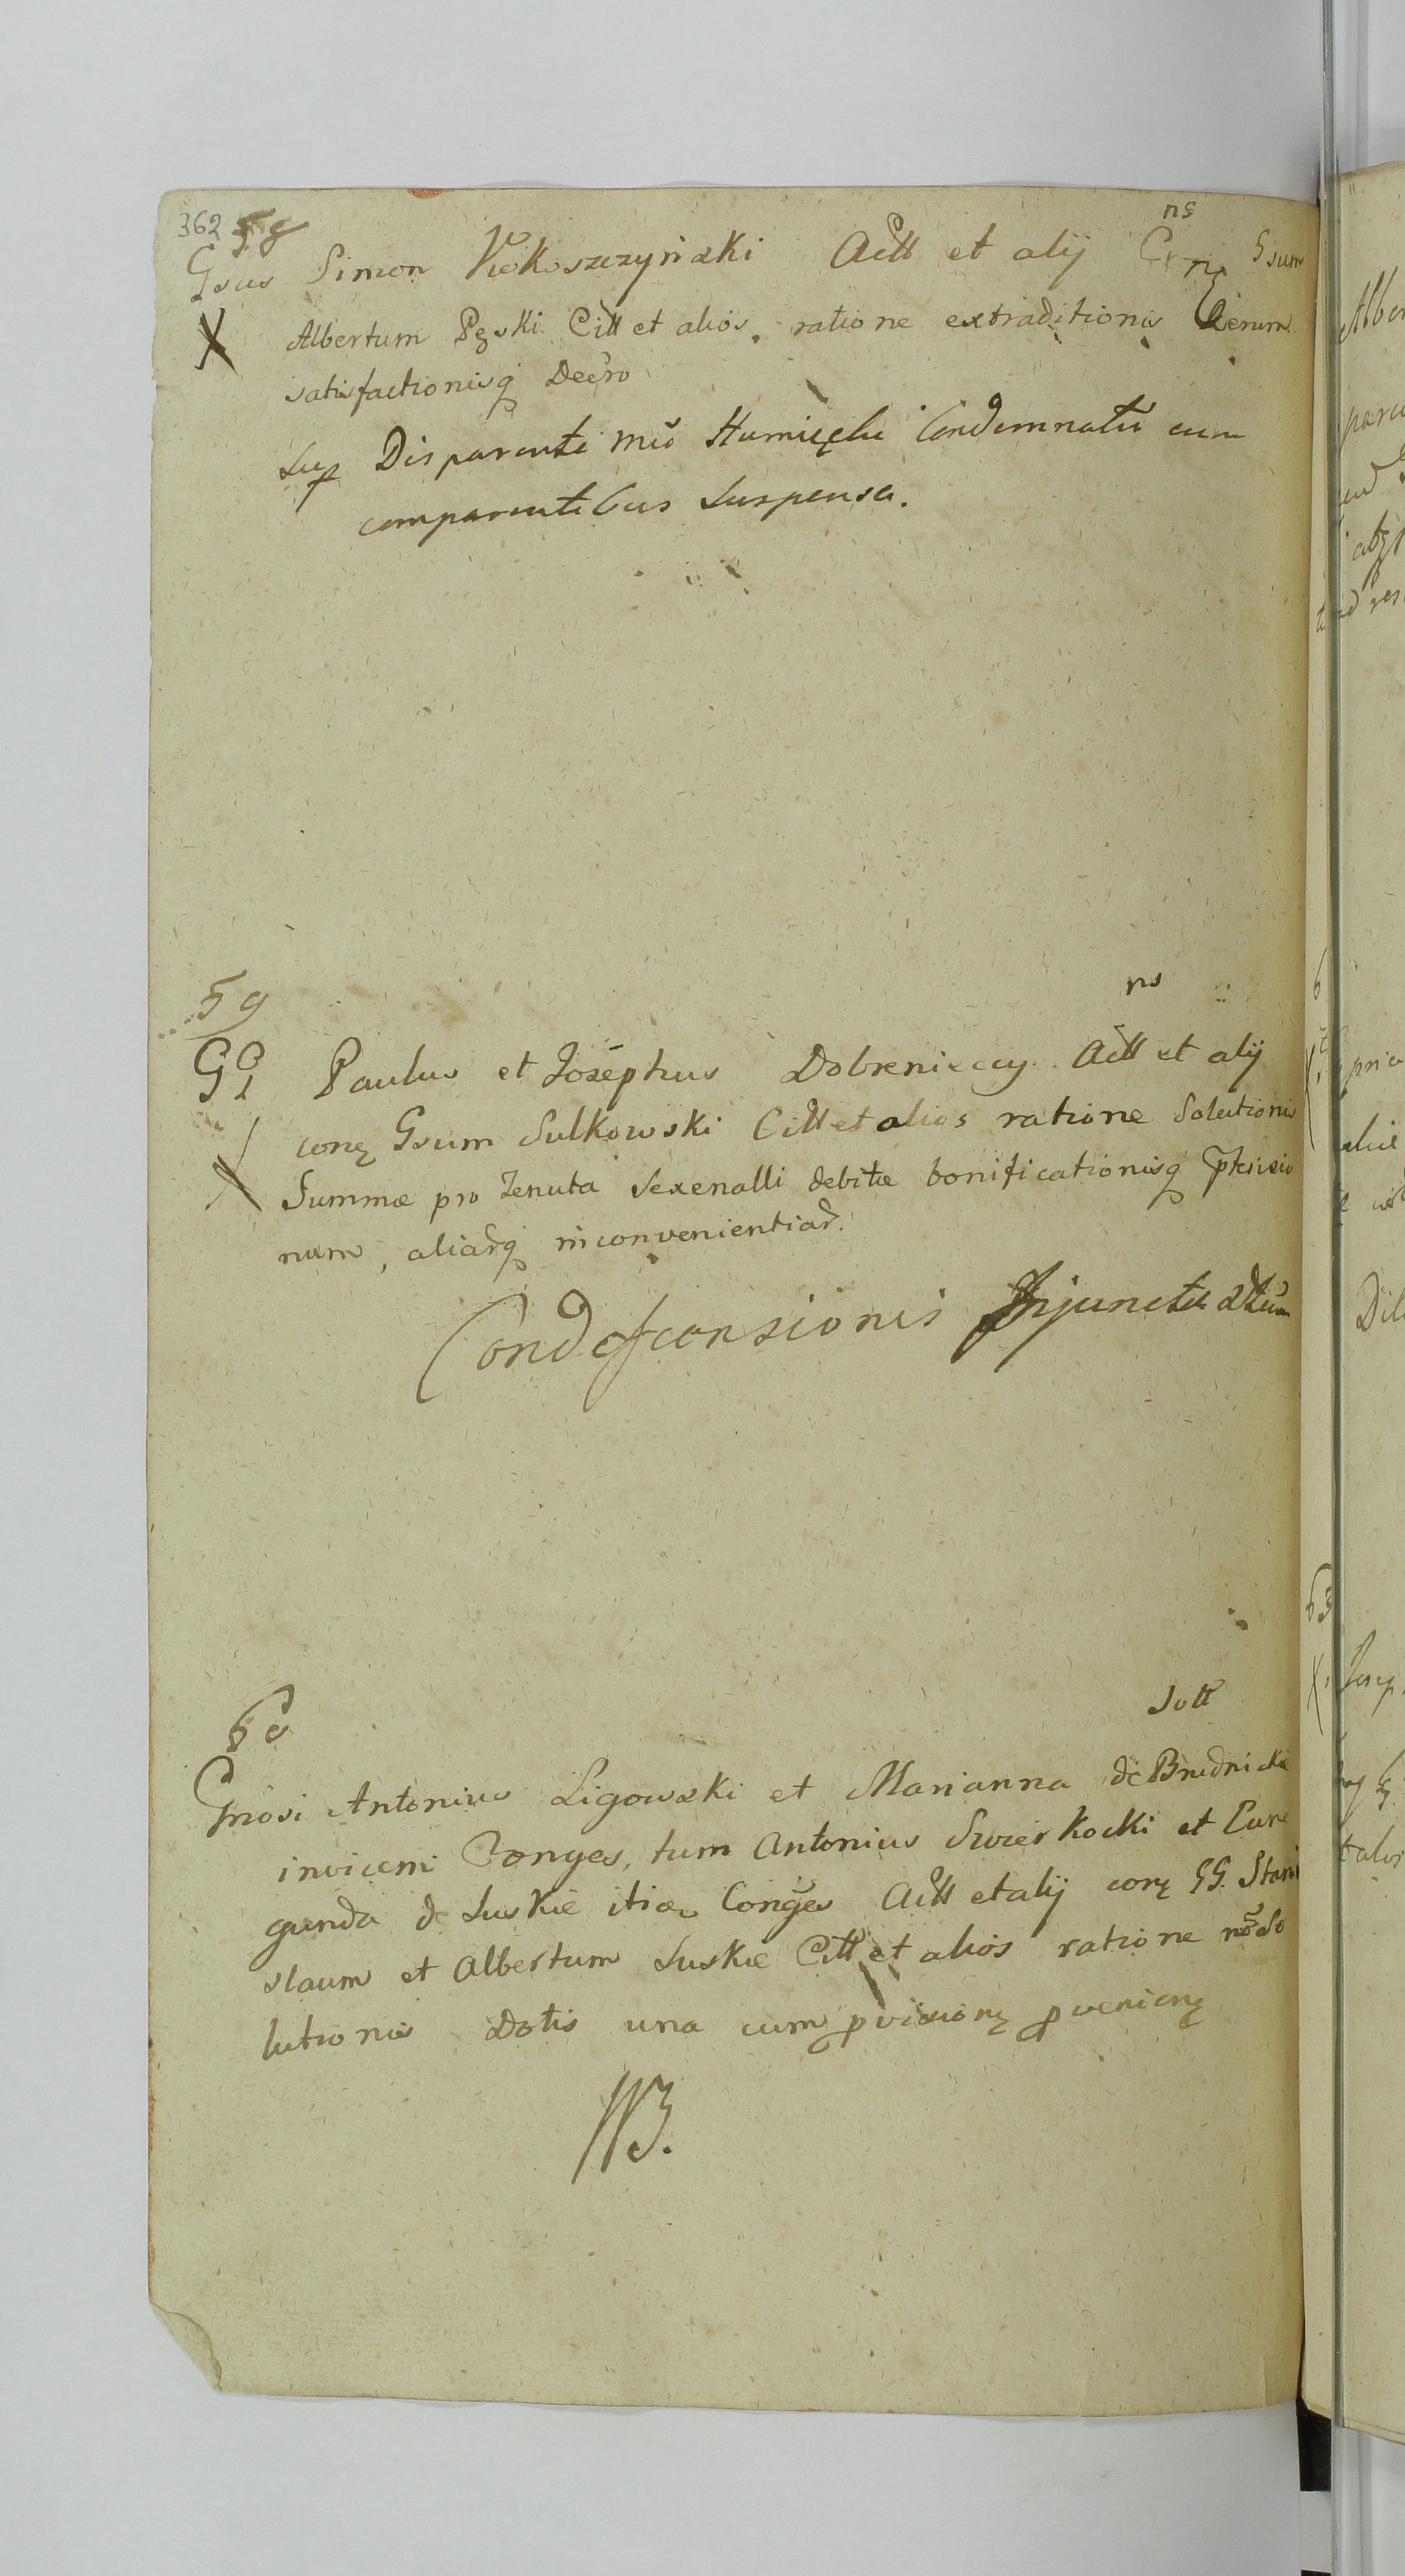 362 58
ns
Gsus Simon Kokoszczyński Actt et alij Gsum
Albertum Pęski Citt et alios, ratione extraditionis
satisfactionisq Decro
Disparente Condemnatu cum
comparentibus suspensa.
59
ns
GG Paulus et Josephus Dobrenieccy Actt et alij
conę Gsum Sulkowski Citt et alios ratione Solutionis
Summæ pro Tenuta Sexenalli debitæ bonificationisq ptensio
num, aliarq inconvenientiar.
Injuncta
60
Sott
Gnosi Antonius Ligowski et Marianna de Brudnickie
invicem Conges, tum Antonius Swierkocki et Cune
gunda de Luskie itidem Conges Actt et alij conę GG. Stani
slaum et Albertum Luskie Citt et alios ratione no So
lutionis Dotis una cum pvisionę pvenienę